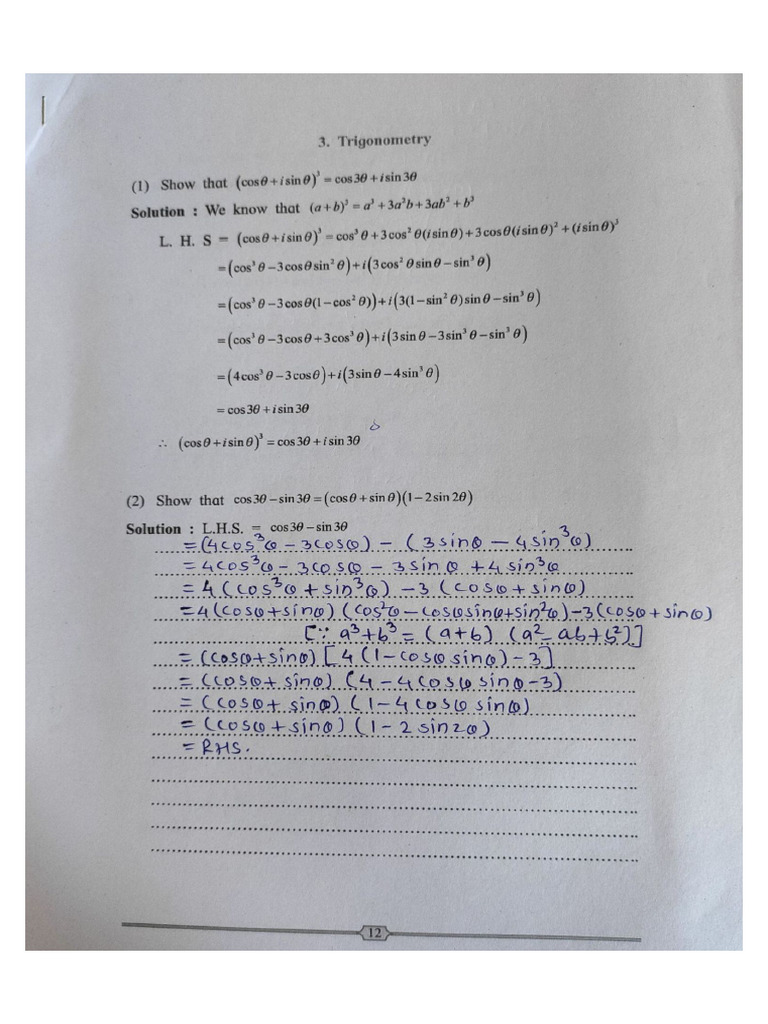 3. Trigonometry
(1) Show that (cosθ + i sinθ)³ = cos3θ + i sin3θ
Solution : We know that (a + b)³ = a³ + 3a²b + 3ab² + b³
L. H. S = (cosθ + i sinθ)³ = cos³θ + 3cos²θ(i sinθ) + 3cosθ(i sinθ)² + (i sinθ)³
= (cos³θ − 3cosθ sin²θ) + i(3cos²θ sinθ − sin³θ)
= (cos³θ − 3cosθ(1 − cos²θ)) + i(3(1 − sin²θ) sinθ − sin³θ)
= (cos³θ − 3cosθ + 3cos³θ) + i(3sinθ − 3sin³θ − sin³θ)
= (4cos³θ − 3cosθ) + i(3sinθ − 4sin³θ)
= cos3θ + i sin3θ
∴ (cosθ + i sinθ)³ = cos3θ + i sin3θ
(2) Show that cos3θ − sin3θ = (cosθ + sinθ)(1 − 2sin2θ)
Solution : L.H.S. = cos3θ − sin3θ
= (4cos³θ − 3cosθ) − (3sinθ − 4sin³θ)
= 4cos³θ − 3cosθ − 3sinθ + 4sin³θ
= 4(cos³θ + sin³θ) − 3(cosθ + sinθ)
= 4(cosθ + sinθ)(cos²θ − cosθsinθ + sin²θ) − 3(cosθ + sinθ)
[∵ a³ + b³ = (a + b) (a² − ab + b²)]
= (cosθ + sinθ)[4(1 − cosθ sinθ) − 3]
= (cosθ + sinθ) (4 − 4cosθ sinθ − 3)
= (cosθ + sinθ) (1 − 4cosθ sinθ)
= (cosθ + sinθ) (1 − 2 sin2θ)
= RHS.
12